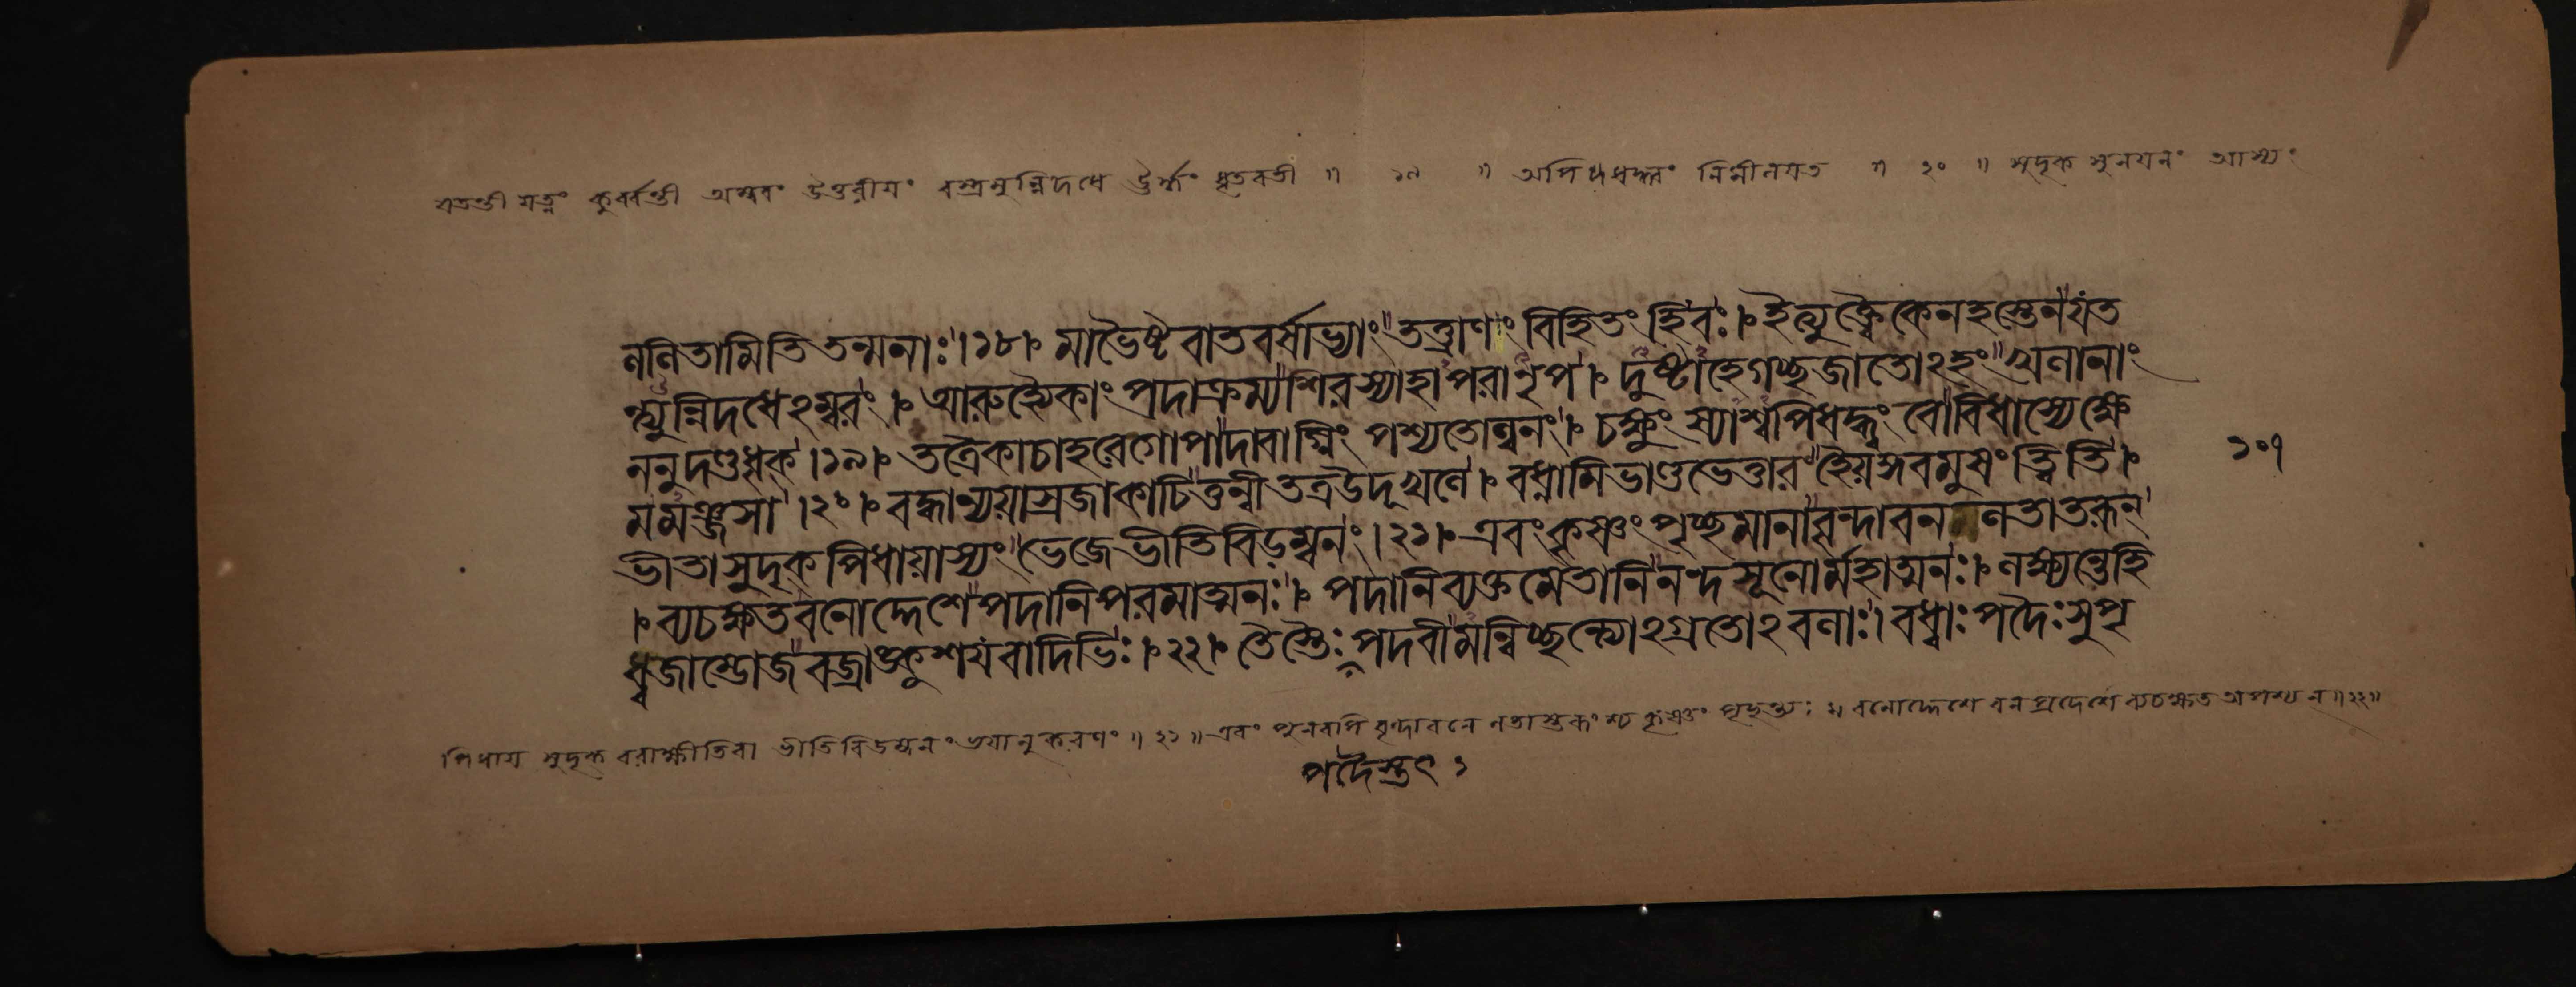 যতন্তী যত্নং কুর্ব্বন্তী অম্বরং উত্তরীয়ং বস্ত্রমুন্নিদধে ঊর্দ্ধ্বং ধৃতবতী ॥ ১৯ ॥ অপিধদ্ধ্বং নিমীলয়ত ॥ ২০ ॥ সুদৃক্ সুনয়নং আস্যং
ললিতামিতিতন্মনাঃ।১৮। মাভৈষ্টবাতবর্ষাভ্যাং তত্ত্রাণং বিহিতং হিবঃ। ইত্যুক্ত্বৈকেনহস্তেনযত
ন্ত্যুন্নিদধেঽম্বরং। আরুহ্যৈকাংপদাক্রম্যশিরস্যাহাপরানৃপ। দুষ্টাহেগচ্ছজাতোঽহং খলানাং
ননুদণ্ডধৃক্।১৯। তত্রৈকাচাহরেগোপাদাবাগ্নিং পশ্যতোল্বনং। চক্ষুংস্যাশ্বপিধদ্ধ্বং বোবিধাস্যেক্ষে
মমঞ্জসা।২০। বদ্ধান্যয়াস্রজাকাচিত্তন্বীতত্রউদূখলে। বধ্নামিভাণ্ডভেত্তারংহৈয়ঙ্গবমুষংত্বিতি।
ভীতাসুদৃক্পিধায়াস্যংভেজেভীতিবিড়ম্বনং।২১। এবংকৃষ্ণংপৃচ্ছমানাবৃন্দাবনলতাতরূন্
। ব্যচক্ষতবনোদ্দেশেপদানিপরমাত্মনঃ। পদানিব্যক্তমেতানিনন্দসূনোর্মহাত্মনঃ। লক্ষ্যন্তেহি
ধ্বজাম্ভোজবজ্রাঙ্কুশযবাদিভিঃ।২২। তৈস্তৈঃপদবীমন্বিচ্ছন্ত্যোঽগ্রতোঽবলাঃ। বধ্বাঃপদৈঃসুপৃ
১০৭
পিধায় সুদৃক্ বরাক্ষীতিবা ভীতিবিড়ম্বনং ভয়ানুকরণং ॥ ২১ ॥ এবং পুনরপি বৃন্দাবনে লতাস্তরূংশ্চ কৃষ্ণং বনোদ্দেশে বনপ্রদেশে ব্যচক্ষত অপশ্যন্ ॥ ২২ ॥
পদৈস্তৎ ১